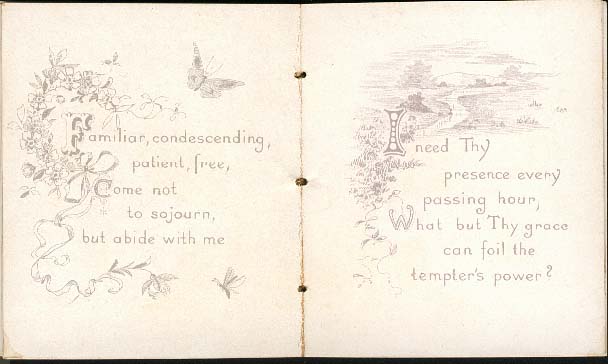 Familiar, condescending,
patient, free,
Come not
to sojourn,
but abide with me
I need Thy
presence every
passing hour,
What but Thy grace
can foil the
tempter's power?